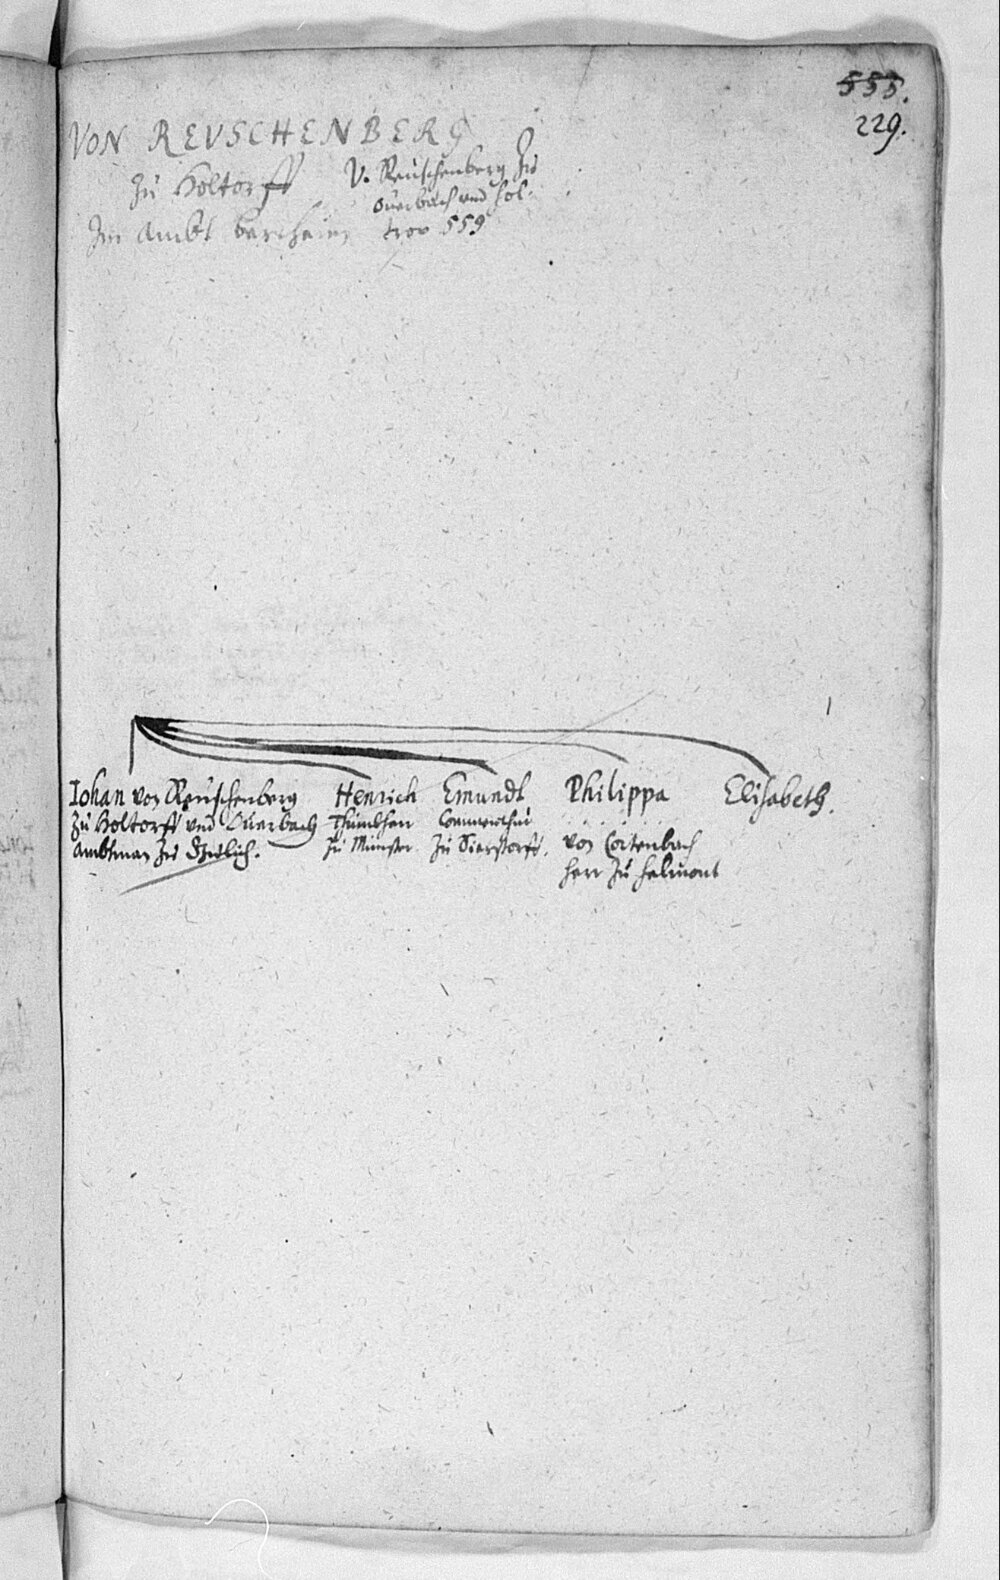 555.
229.
VON REVSCHENBERG
zu Holtorff
Im Ambt bercheim
V. Reuschenberg zu
Ouerbach und Hol-
trop 559
Iohan von Reuschenberg
zu Holtorff und Ouerbach
Ambtman zu Gulich.
Henrich
Thumbherr
zu Münster
Emundt
Commenthur
zu Sierstorff.
Philippa
. . . . . .
von Cortenbach
herr zu Helmont
Elisabeth.